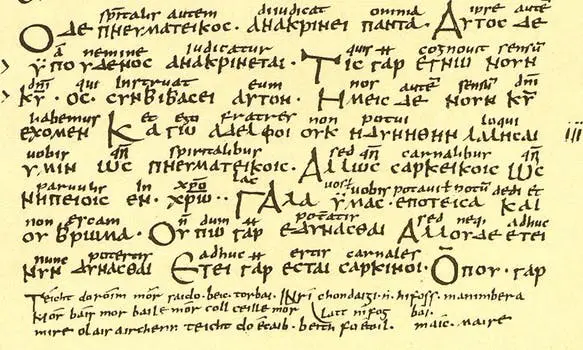 spiritalis autem diiudicat omnia ipse autē
Ο δε πνευματεικος · ανακρινει παντα · Αυτος δε
ā nemine iudicatur quis ++ cognouit sensū
ϋπουδενος ανακρινεται · Τις γαρ εγνω νουν
dn̄i qui instruat eum nos autē sensū dn̄i
κ̅υ̅ · ος · συνβιβασει αυτον · Ημεις δε νουν κ̅υ̅
habemus et ego fratres non potui loqui
εχομεν Καγω αδελφοι ουκ ηδυνηθην λαλησαι
iij
uobis qn̄ spiritalibus sed qn̄ carnalibus qn̄
υμιν ως πνευματεικοις · Αλλως σαρκεικοις ως
paruulis in xp̄o lac uos uobis potaui potū dedi et
νηπειοις εν · χρ̅ω̅ ·· Γαλα υμας · εποτεισα και
non escam n̄ dum ++ poteratis sed neq. adhuc
ου βρωμα · Ουπω γαρ εδυνασθαι Αλλουδε ετει
nunc potestis adhuc ++ estis carnales
νυν δυνασθαι Ετει γαρ εσται σαρκινοι · Οπου · γαρ
Teicht doróim mór saido · beic torbai · INrí chondaigi · hifoss · manimbera
Mór báis mor baile mór coll ceille mor latt nífog bai ·
mire olais airchenn teicht dó ecaib · beith fo étoil · maic · maire